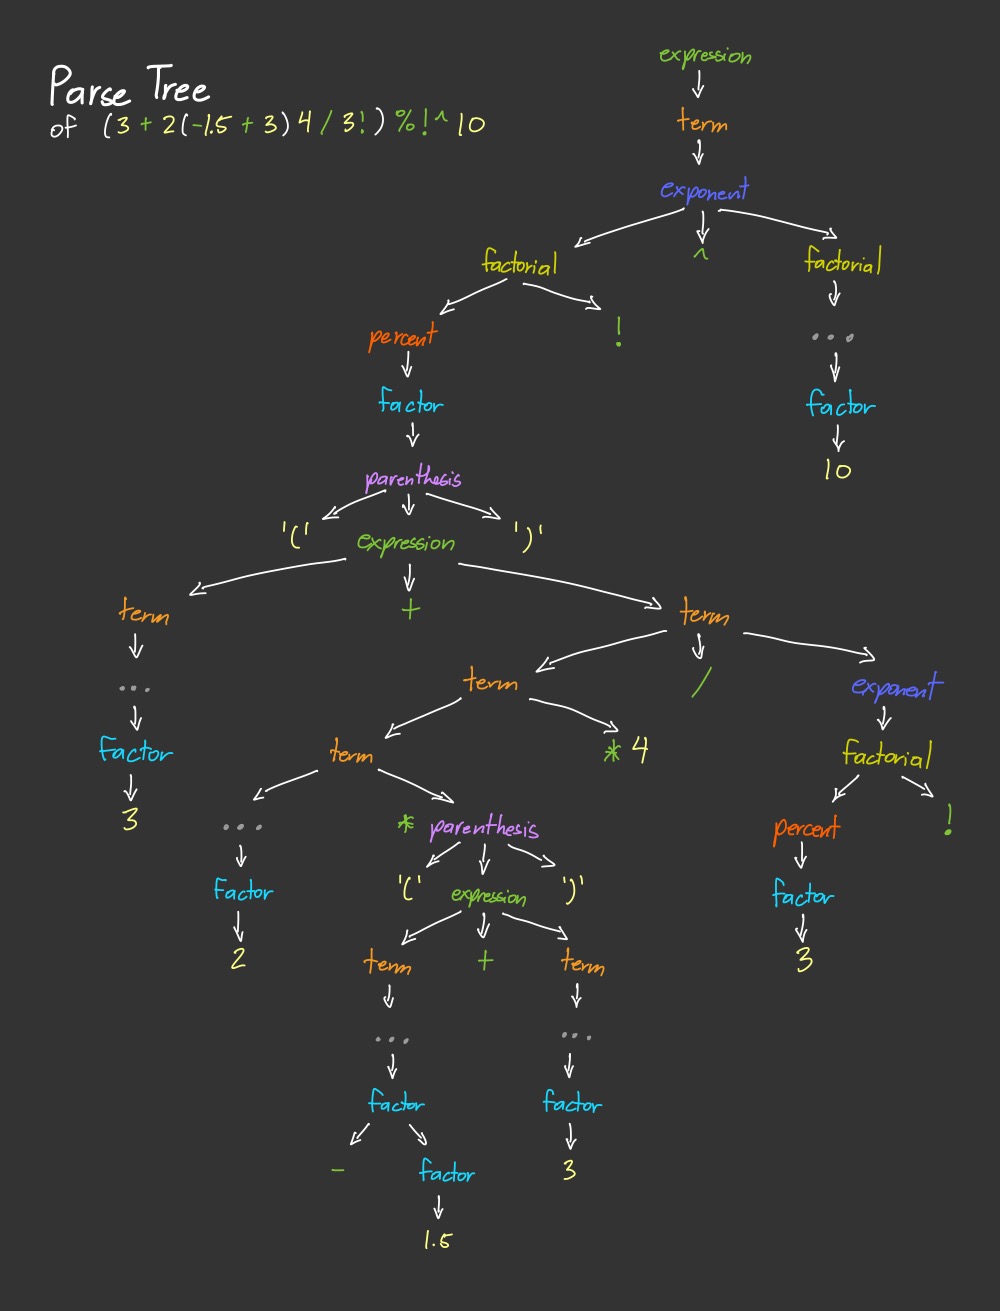 Parse Tree
of (3 + 2(-1.5 + 3) 4 / 3!) %!^10
expression
term
exponent
factorial ^ factorial
percent ! ...
factor factor
10
parenthesis
'(' expression ')'
term + term
... term / exponent
Factor term * 4 factorial
3 ... * parenthesis percent !
Factor '(' expression ')' factor
2 term + term 3
... ...
factor factor
- factor 3
1.5